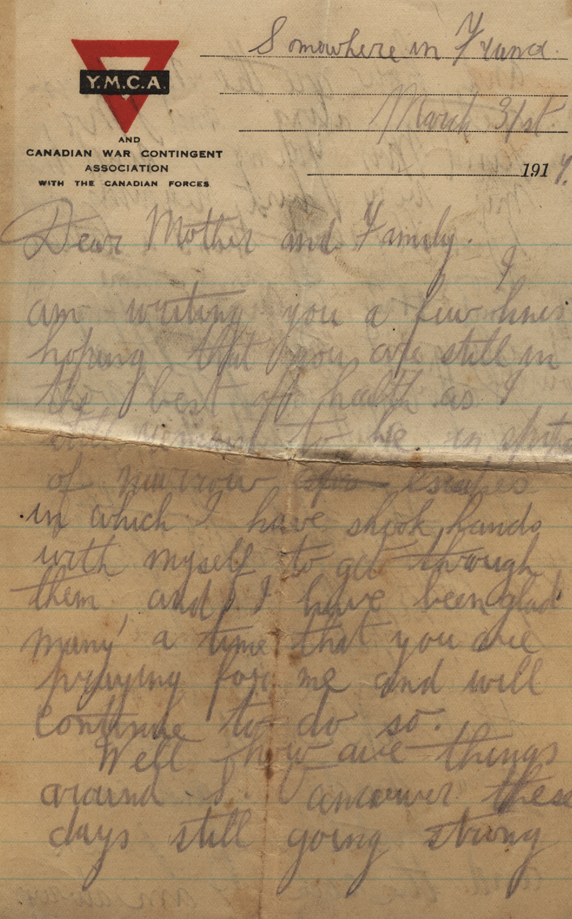 Somewhere in France.
March 31st.
Y.M.C.A.
AND
CANADIAN WAR CONTINGENT
ASSOCIATION
WITH THE CANADIAN FORCES
1917.
Dear Mother and Family.
I
am writing you a few lines
hoping that you are still in
the best of health as I
still remain to be in spite
of narrow escapes
in which I have shook hands
with myself to get through
them and I have been glad
many a time that you are
praying for me and will
continue to do so.
Well how are things
around S. Vancouver these
days still going strong